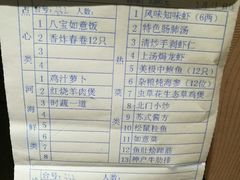 点
心
类
1 八宝如意饭
2 香炸春卷12只
河
海
鲜
类
1 鸡汁萝卜
2 红烧羊肉煲
3 时蔬一道
类
1 风味知味虾（6两）
2 特色肠肺汤
3 清炒手剥虾仁
4 上汤焗龙虾
5 美极中鲍鱼（12只）
6 杂粮炖海参（12位）
7 虫草花生态草鸡煲
8 北门小炒
9 苏式酱方
10 松鼠桂鱼
11 如意菜
12 鱼肚烩蹄筋
13 神户牛肋排
台号： 人数：